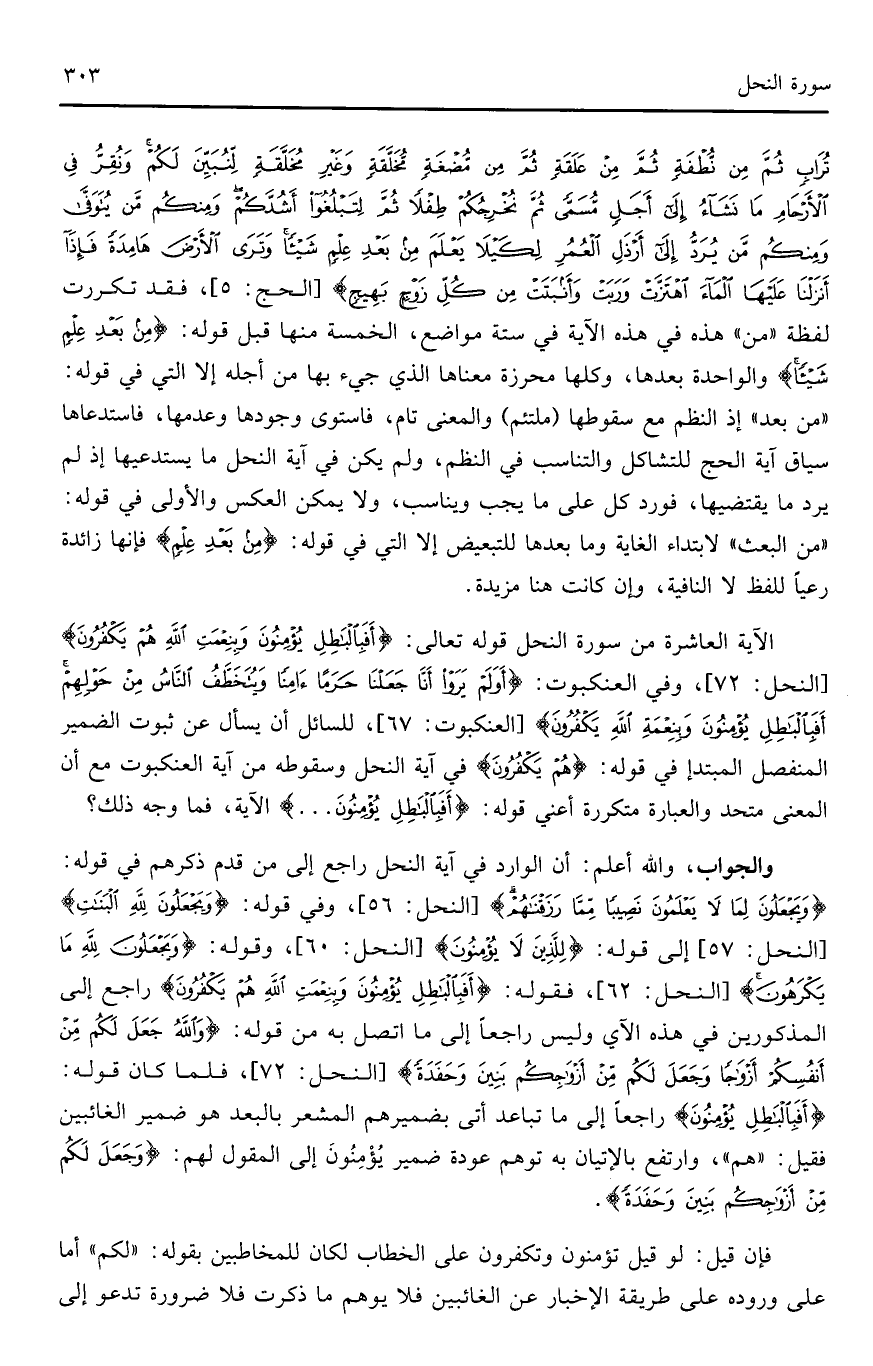 سورة النحل
٣٠٣
تُرَابٍ ثُمَّ مِن نُّطْفَةٍ ثُمَّ مِنْ عَلَقَةٍ ثُمَّ مِن مُّضْغَةٍ مُّخَلَّقَةٍ وَغَيْرِ مُخَلَّقَةٍ لِّنُبَيِّنَ لَكُمْ ۚ وَنُقِرُّ فِى
ٱلْأَرْحَامِ مَا نَشَآءُ إِلَىٰٓ أَجَلٍ مُّسَمًّى ثُمَّ نُخْرِجُكُمْ طِفْلًا ثُمَّ لِتَبْلُغُوٓا۟ أَشُدَّكُمْ ۖ وَمِنكُم مَّن يُتَوَفَّىٰ
وَمِنكُم مَّن يُرَدُّ إِلَىٰٓ أَرْذَلِ ٱلْعُمُرِ لِكَيْلَا يَعْلَمَ مِنۢ بَعْدِ عِلْمٍ شَيْـًٔا ۚ وَتَرَى ٱلْأَرْضَ هَامِدَةً فَإِذَآ
أَنزَلْنَا عَلَيْهَا ٱلْمَآءَ ٱهْتَزَّتْ وَرَبَتْ وَأَنۢبَتَتْ مِن كُلِّ زَوْجٍۭ بَهِيجٍ﴾ [الحج: ٥]، فقد تكررت
لفظة «من» هذه في هذه الآية في ستة مواضع، الخمسة منها قبل قوله: ﴿مِنۢ بَعْدِ عِلْمٍ
شَيْـًٔا ۚ﴾ والواحدة بعدها، وكلها محرزة معناها الذي جيء بها من أجله إلا التي في قوله:
«من بعد» إذ النظم مع سقوطها (ملتئم) والمعنى تام، فاستوى وجودها وعدمها، فاستدعاها
سياق آية الحج للتشاكل والتناسب في النظم، ولم يكن في آية النحل ما يستدعيها إذ لم
يرد ما يقتضيها، فورد كل على ما يجب ويناسب، ولا يمكن العكس والأولى في قوله:
«من البعث» لابتداء الغاية وما بعدها للتبعيض إلا التي في قوله: ﴿مِنۢ بَعْدِ عِلْمٍ﴾ فإنها زائدة
رعياً للفظ لا النافية، وإن كانت هنا مزيدة.
الآية العاشرة من سورة النحل قوله تعالى: ﴿أَفَبِٱلْبَٰطِلِ يُؤْمِنُونَ وَبِنِعْمَتِ ٱللَّهِ هُمْ يَكْفُرُونَ﴾
[النحل: ٧٢]، وفي العنكبوت: ﴿أَوَلَمْ يَرَوْا۟ أَنَّا جَعَلْنَا حَرَمًا ءَامِنًا وَيُتَخَطَّفُ ٱلنَّاسُ مِنْ حَوْلِهِمْ ۚ
أَفَبِٱلْبَٰطِلِ يُؤْمِنُونَ وَبِنِعْمَةِ ٱللَّهِ يَكْفُرُونَ﴾ [العنكبوت: ٦٧]، للسائل أن يسأل عن ثبوت الضمير
المنفصل المبتدإ في قوله: ﴿هُمْ يَكْفُرُونَ﴾ في آية النحل وسقوطه من آية العنكبوت مع أن
المعنى متحد والعبارة متكررة أعني قوله: ﴿أَفَبِٱلْبَٰطِلِ يُؤْمِنُونَ...﴾ الآية، فما وجه ذلك؟
والجواب، والله أعلم: أن الوارد في آية النحل راجع إلى من قدم ذكرهم في قوله:
﴿وَيَجْعَلُونَ لِمَا لَا يَعْلَمُونَ نَصِيبًا مِّمَّا رَزَقْنَٰهُمْ ۗ﴾ [النحل: ٥٦]، وفي قوله: ﴿وَيَجْعَلُونَ لِلَّهِ ٱلْبَنَٰتِ﴾
[النحل: ٥٧] إلى قوله: ﴿لِلَّذِينَ لَا يُؤْمِنُونَ﴾ [النحل: ٦٠]، وقوله: ﴿وَيَجْعَلُونَ لِلَّهِ مَا
يَكْرَهُونَ ۚ﴾ [النحل: ٦٢]، فقوله: ﴿أَفَبِٱلْبَٰطِلِ يُؤْمِنُونَ وَبِنِعْمَتِ ٱللَّهِ هُمْ يَكْفُرُونَ﴾ راجع إلى
المذكورين في هذه الآي وليس راجعاً إلى ما اتصل به من قوله: ﴿وَٱللَّهُ جَعَلَ لَكُم مِّنْ
أَنفُسِكُمْ أَزْوَٰجًا وَجَعَلَ لَكُم مِّنْ أَزْوَٰجِكُم بَنِينَ وَحَفَدَةً﴾ [النحل: ٧٢]، فلما كان قوله:
﴿أَفَبِٱلْبَٰطِلِ يُؤْمِنُونَ﴾ راجعاً إلى ما تباعد أتى بضميرهم المشعر بالبعد هو ضمير الغائبين
فقيل: «هم»، وارتفع بالإتيان به توهم عودة ضمير يُؤْمِنُونَ إلى المقول لهم: ﴿وَجَعَلَ لَكُم
مِّنْ أَزْوَٰجِكُم بَنِينَ وَحَفَدَةً﴾.
فإن قيل: لو قيل تؤمنون وتكفرون على الخطاب لكان للمخاطبين بقوله: «لكم» أما
على وروده على طريقة الإخبار عن الغائبين فلا يوهم ما ذكرت فلا ضرورة تدعو إلى